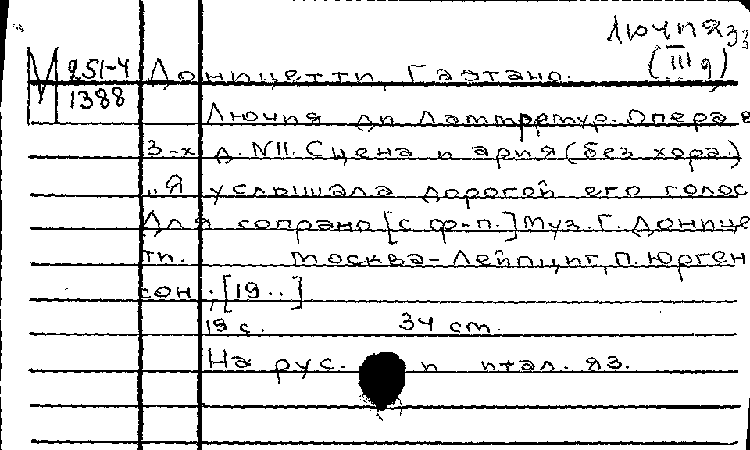 Лючия 33
(III д)
М 251-4 Доницетти, Гаэтано.
1388
Лючия ди Ламмермур. Опера в
3-х д. N11. Сцена и ария (без хора)
"Я услышала дорогой его голос
Для сопрано [с ф-п.] Муз. Г. Доницет
ти. Москва-Лейпциг, П. Юрген
сон, [19..]
19 с. 34 см.
На рус. и итал. яз.